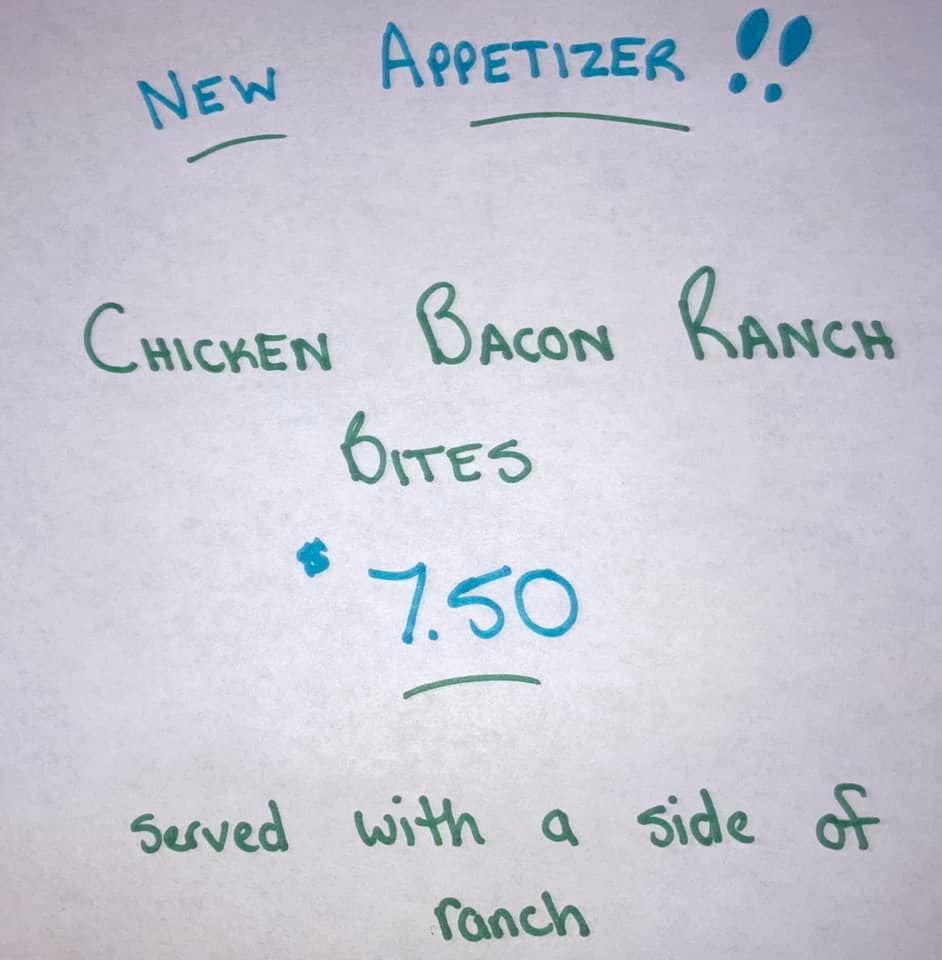 NEW APPETIZER!!
CHICKEN BACON RANCH
BITES
$7.50
served with a side of
ranch